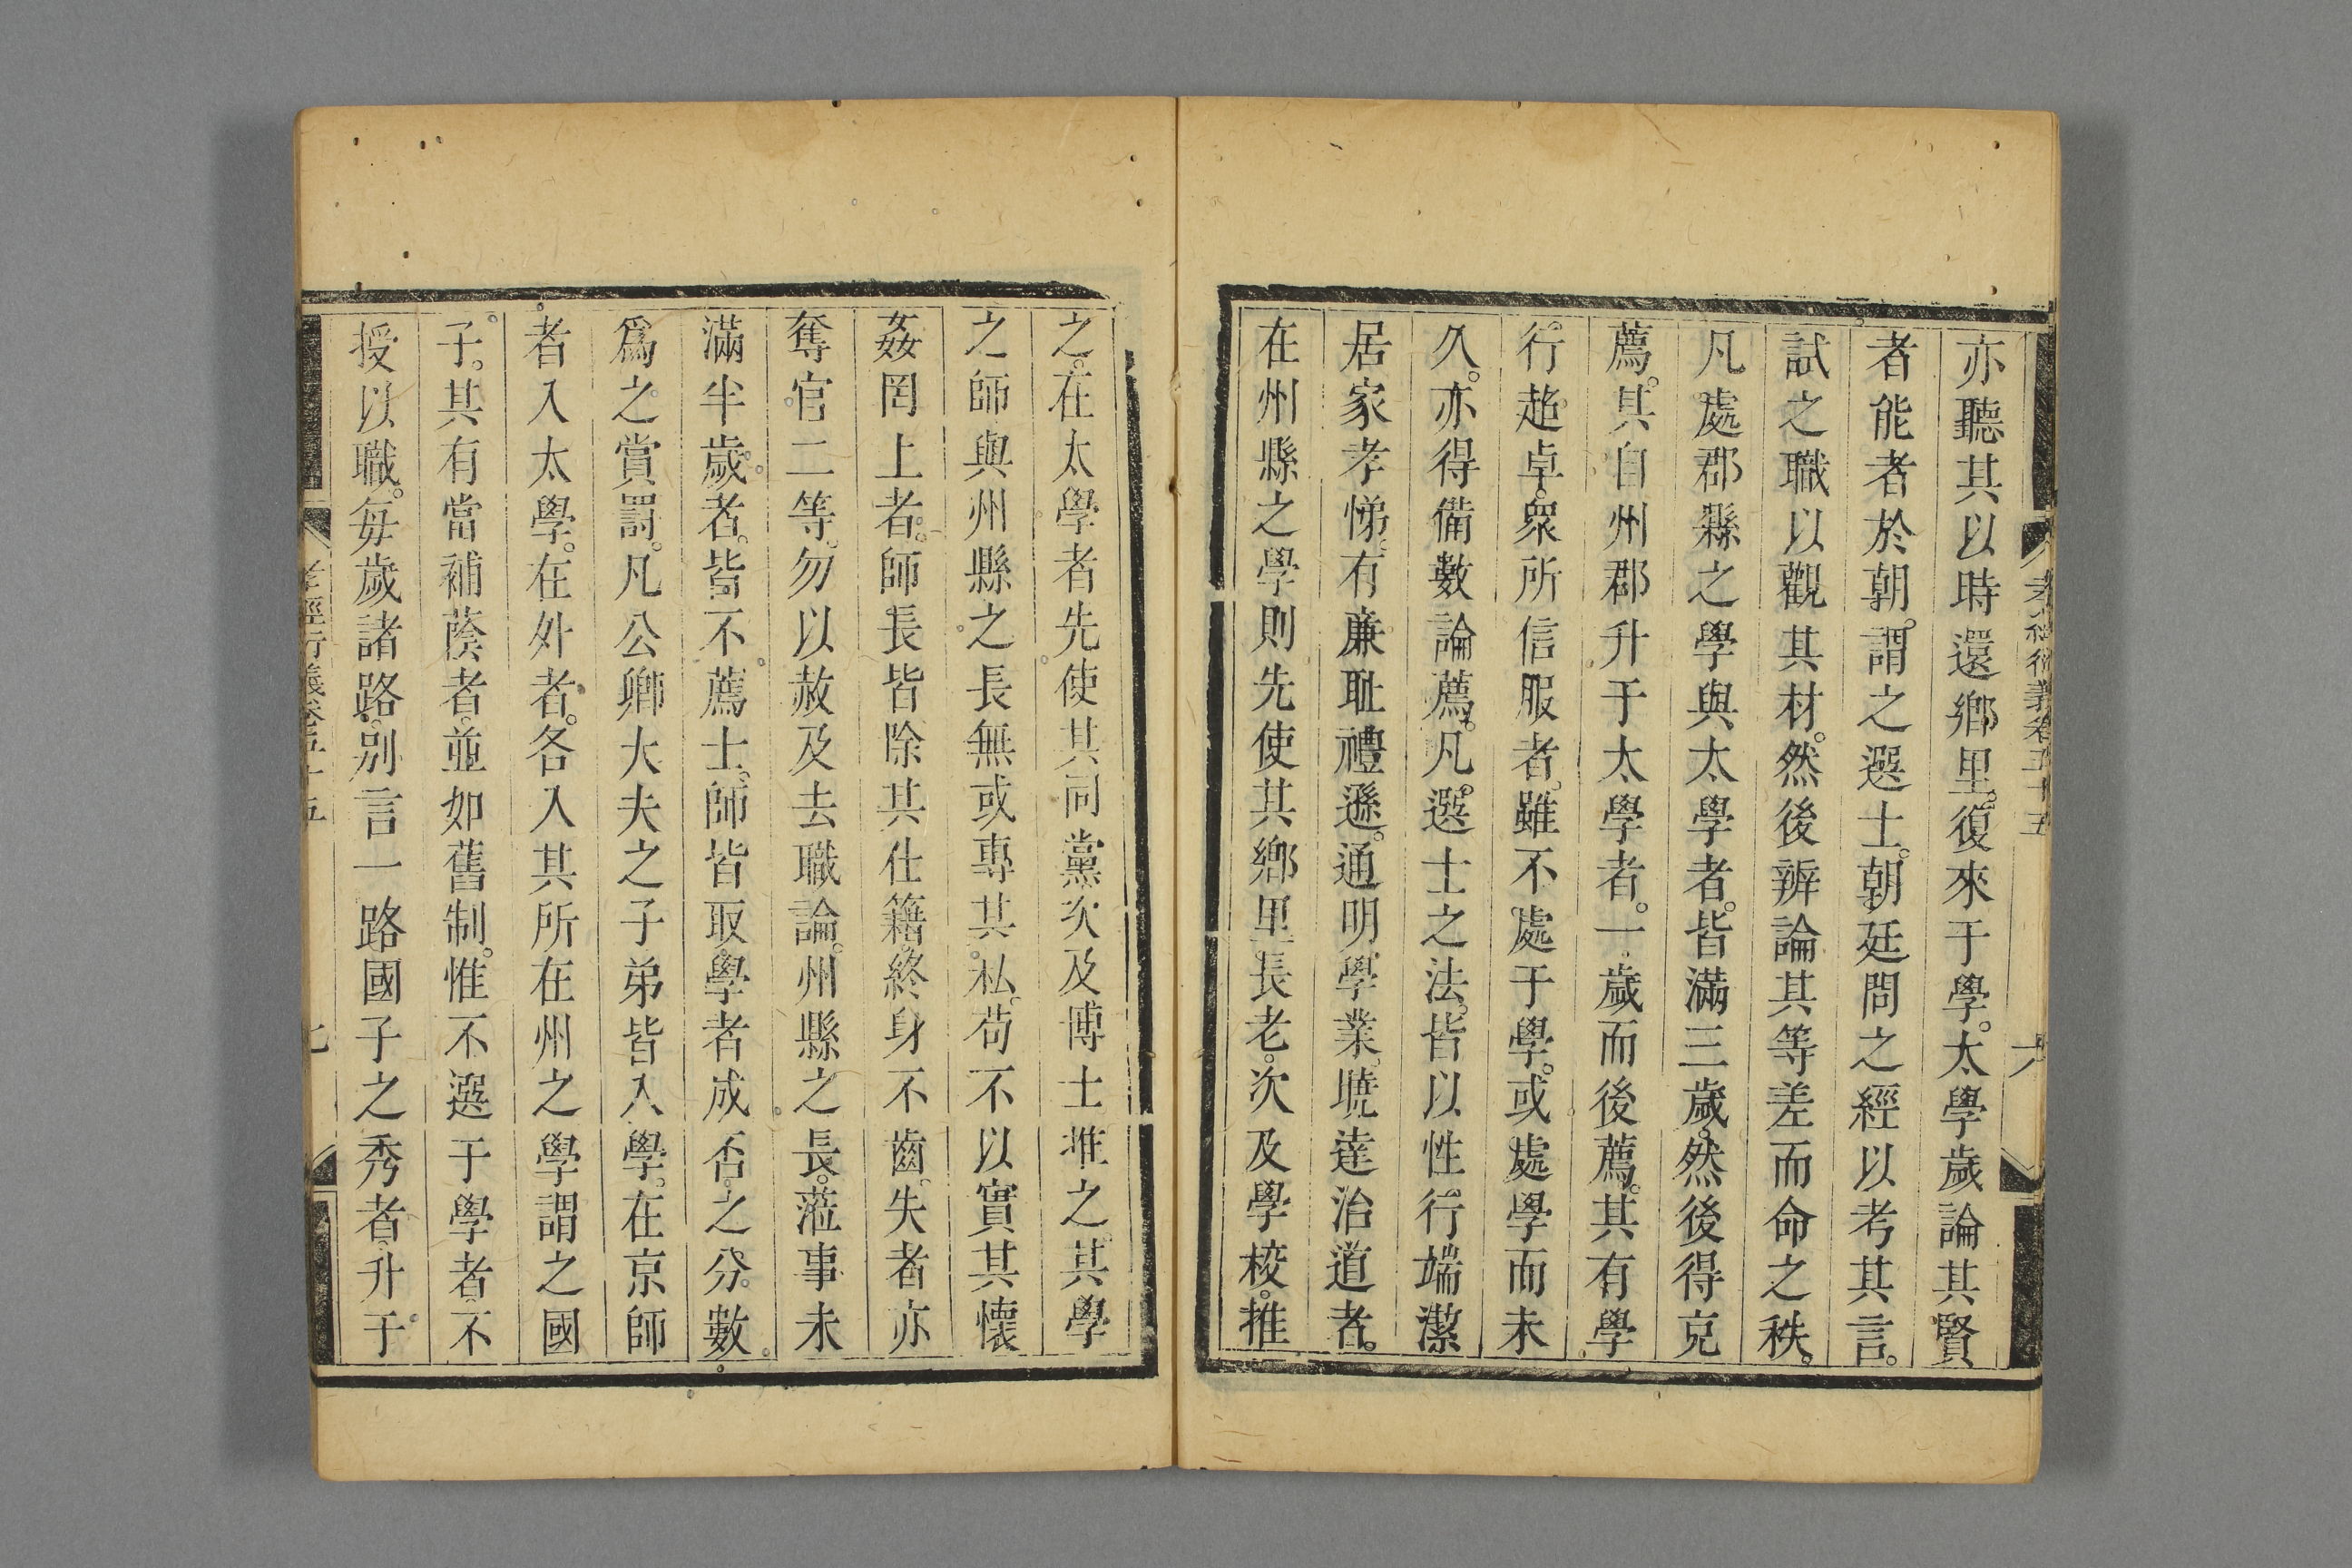 孝經衍義卷五十五
六
亦聽其以時還鄉里。復來于學。太學歲論其賢
者能者於朝。謂之選士。朝廷問之經以考其言。
試之職以觀其材。然後辨論其等差而命之秩。
凡處郡縣之學與太學者。皆滿三歲。然後得充
薦。其自州郡升于太學者。一歲而後薦。其有學
行超卓。衆所信服者。雖不處于學。或處學而未
久。亦得備數論薦。凡選士之法。皆以性行端潔
居家孝悌。有廉耻禮遜。通明學業。曉達治道者。
在州縣之學則先使其鄉里長老。次及學校。推
之。在太學者先使其同黨次及博士推之。其學
之師與州縣之長無或專其私。苟不以實其懷
姦罔上者。師長皆除其仕籍終身不齒。失者亦
奪官二等。勿以赦及去職論。州縣之長。蒞事未
滿半歲者。皆不薦士。師皆取學者成否之分數
爲之賞罰。凡公卿大夫之子弟皆入學。在京師
者入太學。在外者。各入其所在州之學謂之國
子。其有當補蔭者。並如舊制。惟不選于學者不
授以職。每歲諸路。别言一路國子之秀者升于
孝經衍義卷五十五
七